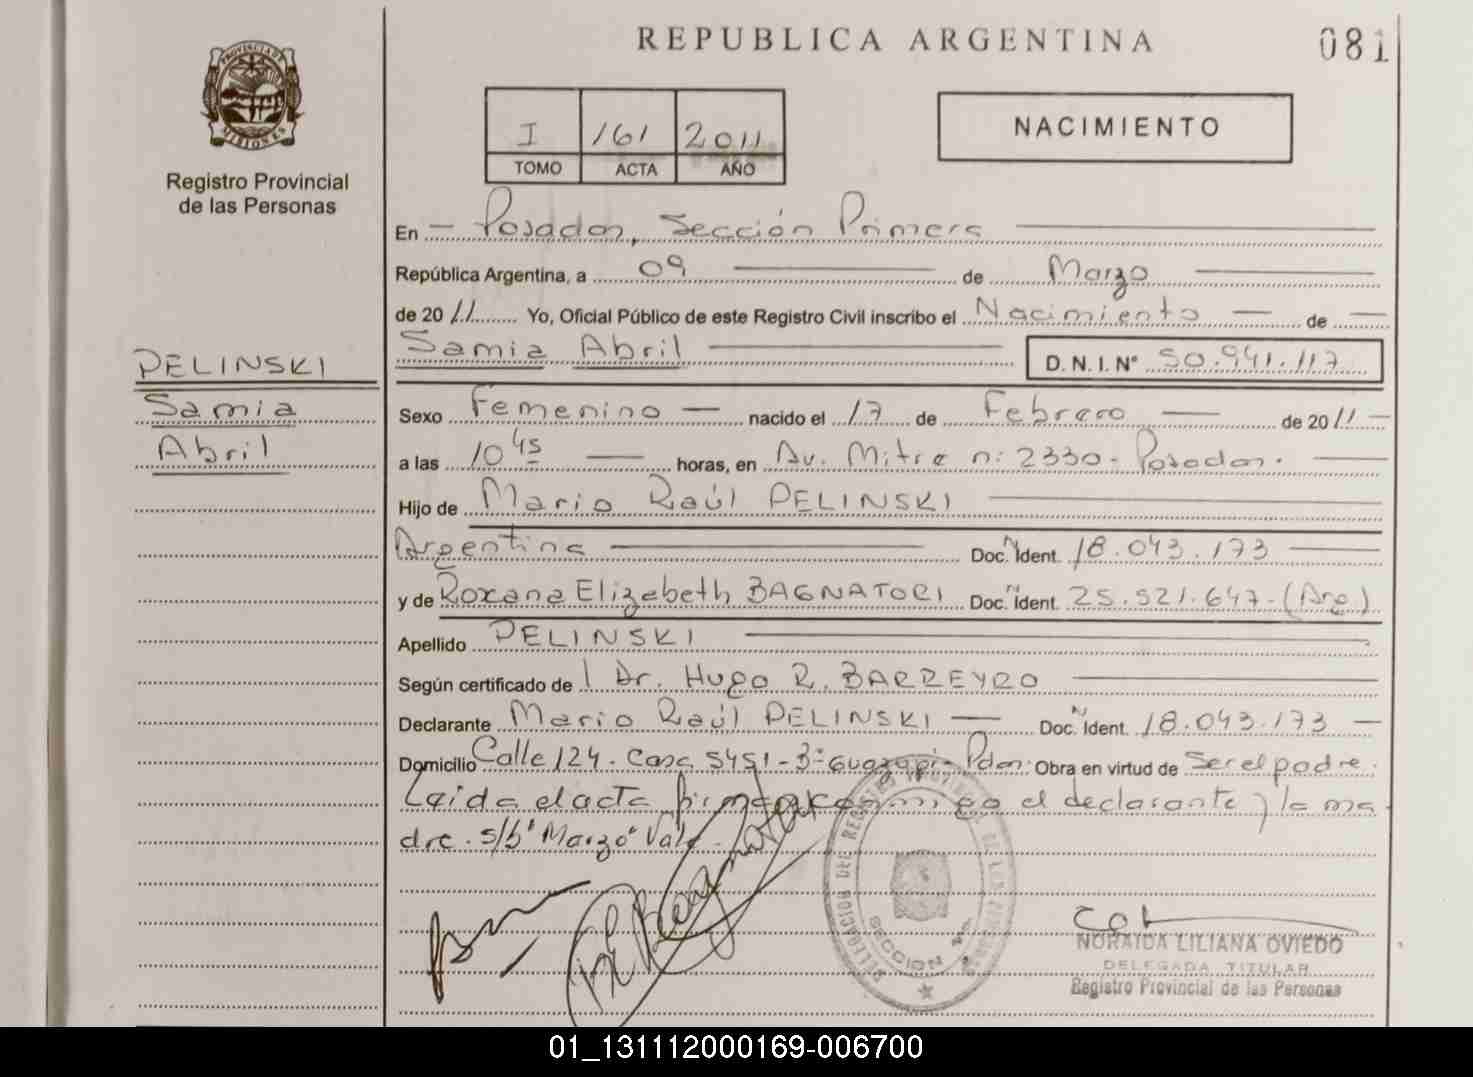 PROVINCIA DE
MISIONES
Registro Provincial
de las Personas
PELINSKI
Samia
Abril
REPUBLICA ARGENTINA
081
I 161 2011
TOMO ACTA AÑO
NACIMIENTO
En - Posadas, Sección Primera
República Argentina, a 09 de Marzo
de 2011 Yo, Oficial Público de este Registro Civil inscribo el Nacimiento de
Samia Abril D. N. I. N° 50.941.117
Sexo Femenino nacido el 17 de Febrero de 2011
a las 10 45 horas, en Av. Mitre n: 2330 - Posadas.
Hijo de Mario Raúl PELINSKI
Argentina Doc. N Ident. 18.043.173
y de Roxana Elizabeth BAGNATORI Doc. N Ident. 25.521.647 - (Arg)
Apellido PELINSKI
Según certificado de l Dr. Hugo R. BARREYRO
Declarante Mario Raúl PELINSKI Doc. N Ident. 18.043.173
Domicilio Calle 124 - Casa 5451 - B° Guazupi - Pdas. Obra en virtud de Ser el padre.
Leída el acta firman conmigo el declarante y la ma
dre. s/b "Marzo" Vale.
DELEGACION DEL REGISTRO PROVINCIAL DE LAS PERSONAS
SECCION 1ra.
NORAIDA LILIANA OVIEDO
DELEGADA TITULAR
Registro Provincial de las Personas
01_131112000169-006700